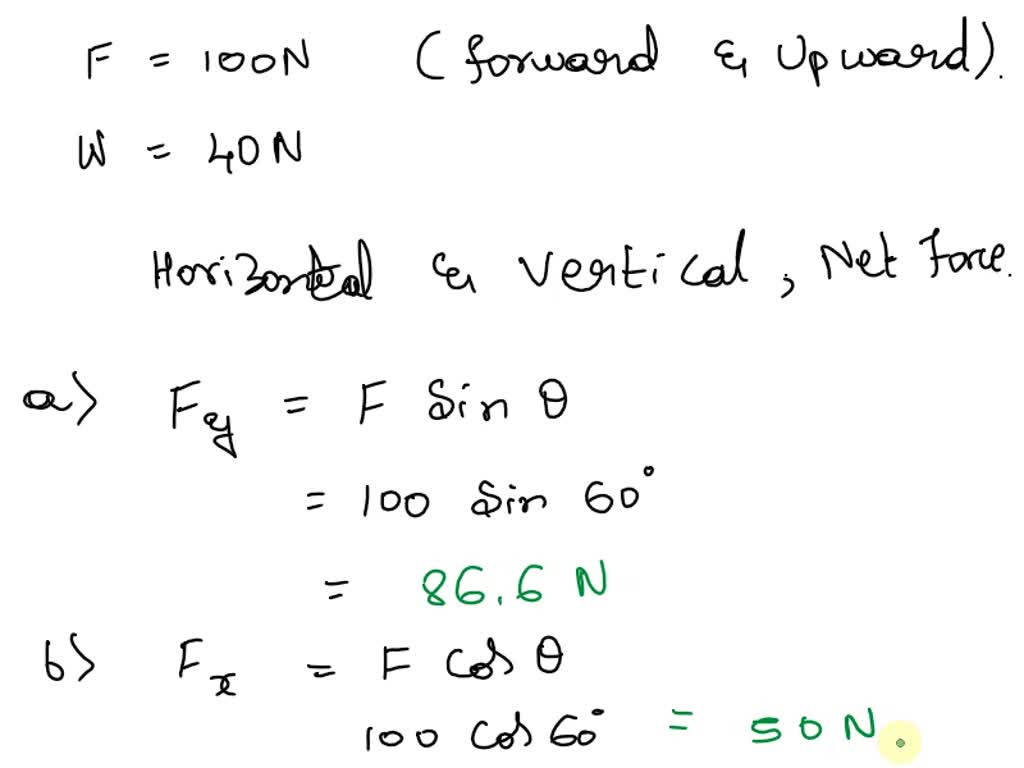 F = 100N (forward & Upward).
W = 40N
Horizontal & Vertical, Net Force.
a> Fy = F Sin θ
= 100 Sin 60°
= 86.6 N
b> Fx = F cos θ
100 cos 60° = 50N.